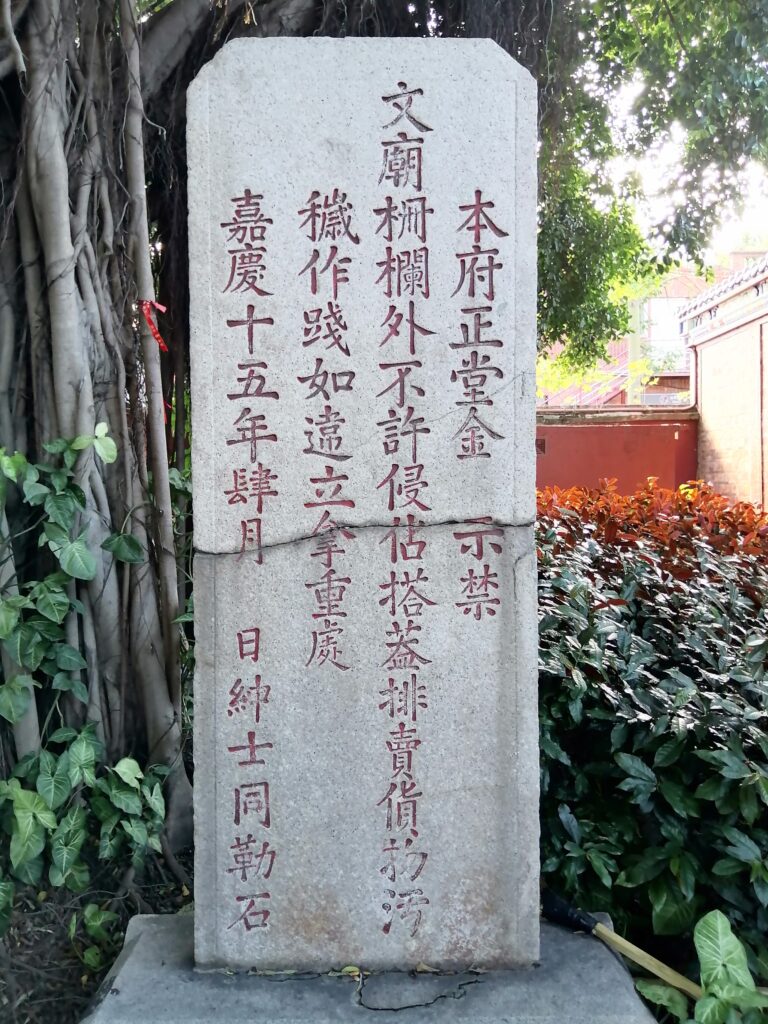 本府正堂金 示禁
文廟柵欄外不許侵佔搭蓋排賣貨物污
穢作踐如違立拿重處
嘉慶十五年肆月 日紳士同勒石